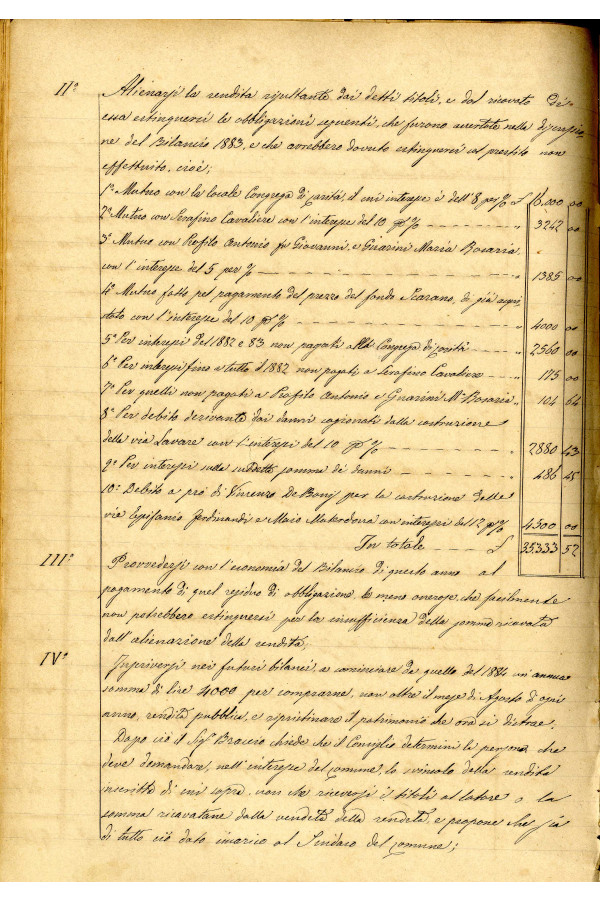 II° Alienarsi la rendita risultante dai detti titoli, e dal ricavato di
essa estinguersi le obbligazioni seguenti, che furono accertate nella
ne del Bilancio 1883, e che avrebbero dovuto estinguersi col prestito non
effettuito, cioè;
1° Mutuo con la locale Congrega di carità, il cui interesse è dell'8 per % £ 16.000 00
2° Mutuo con Serafino Cavaliere con l'interesse del 10 p% " 3242 00
3° Mutuo con Rofilo Antonio fu Giovanni, e Guarini Maria Rosaria
con l'interesse del 5 per % " 1385 00
4° Mutuo fatto pel pagamento del prezzo del fondo Scarano, di già acqui
stato con l'interesse del 10 p% " 4000 00
5° Per interessi del 1882 e 83 non pagati alla Congrega di carità " 2560 00
6° Per interessi fino a tutto il 1882 non pagati a Serafino Cavaliere " 175 00
7° Per quelli non pagati a Profilo Antonio e Guarini Mª Rosaria " 104 64
8° Per debito derivante dai danni cagionati dalla costruzione
della via Lavare con l'interessi del 10 p% " 2880 43
9° Per interessi sulla suddetta somma de' danni " 486 45
10° Debito a prò di Vincenzo De Bonis per la costruzione delle
vie Epifanio Ferdinando e Maio Materdona con interessi del 12 p% 4500 00
In totale £ 35333 52
III° Provvedersi con l'economia del Bilancio di questo anno al
pagamento di quel residuo di obbligazione, le meno onerose, che facilmente
non potrebbero estinguersi per la insufficienza della somma ricavata
dall'alienazione della rendita;
IV° Inscriversi nei futuri bilanci, a cominciare da quello del 1884 un'annua
somma di lire 4000 per comprarne, non oltre il mese di Agosto di ogni
anno, rendita pubblica, e ripristinare il patrimonio che ora si distrae.
Dopo ciò il Sigr Braccio chiede che il Consiglio determini la persona che
deve domandare, nell'interesse del comune, lo svincolo della rendita
inscritta di cui sopra, non che riceversi i titoli al latore o la
somma ricavatane dalla vendita della rendita, e propone che sia
di tutto ciò dato incarico al Sindaco del comune;